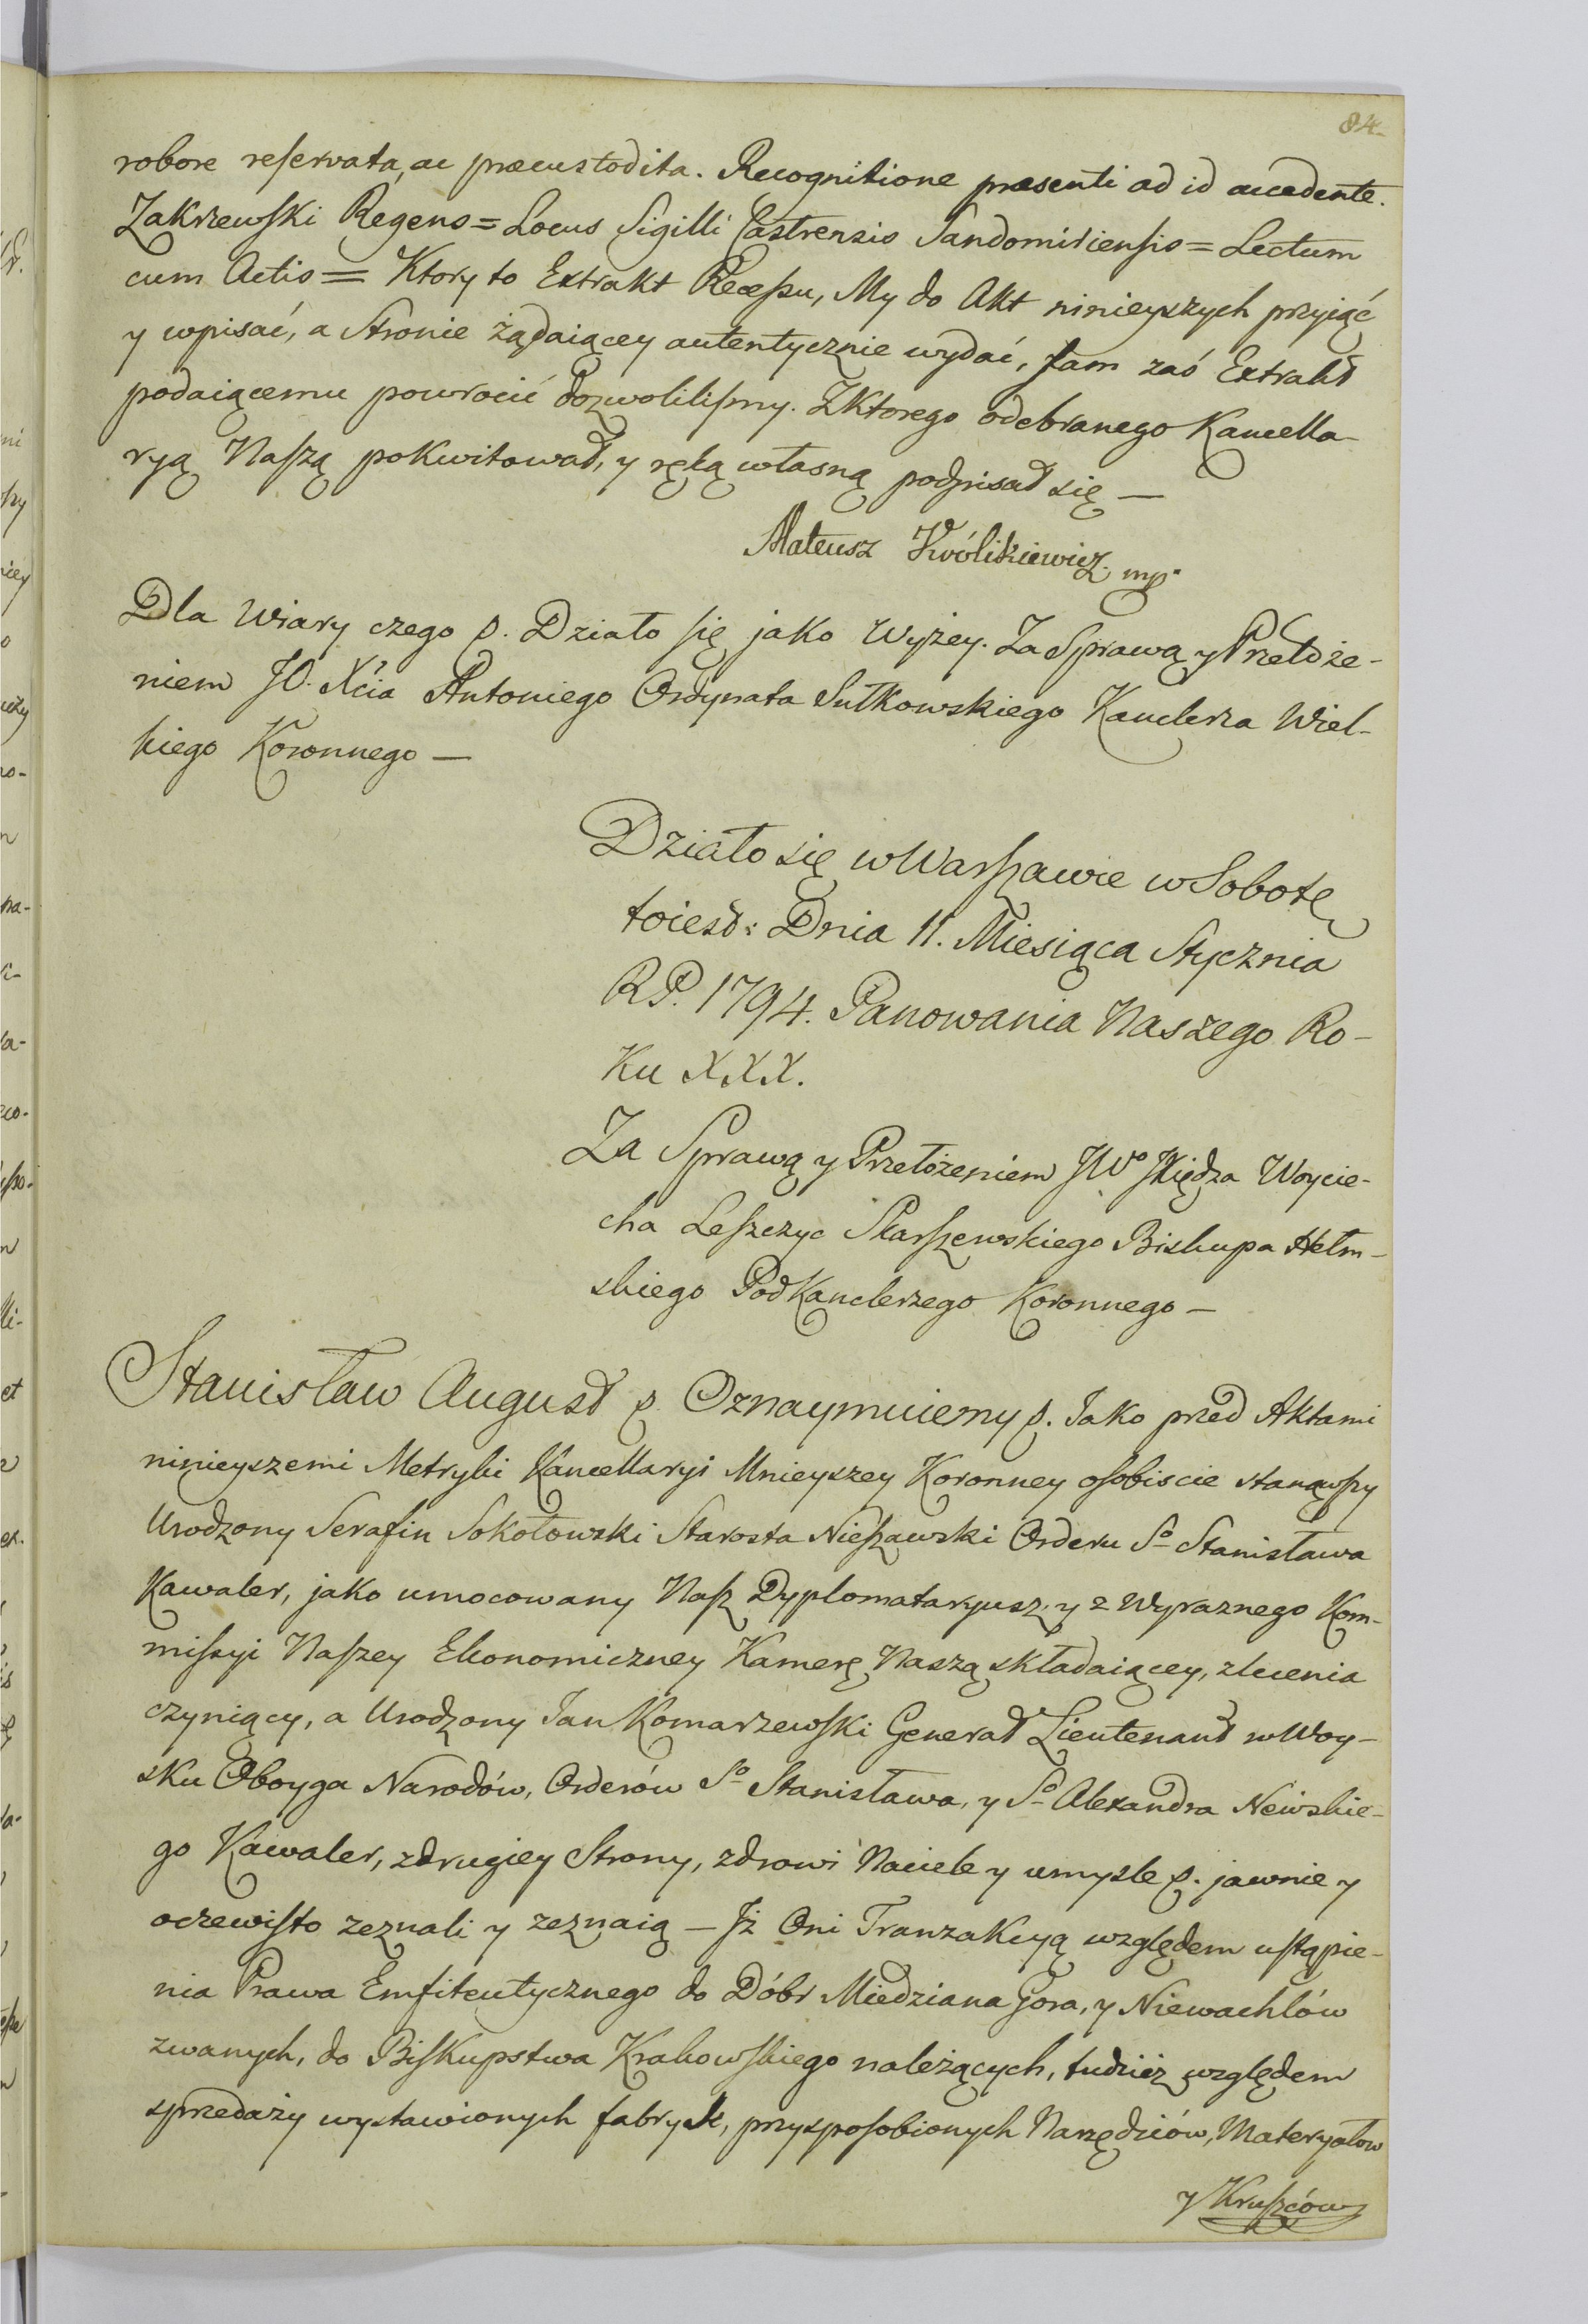 84.
robore reservata, ac præcustodita. Recognitione præsenti ad id accedente.
Zakrzewski Regens = Locus Sigilli Castrensis Sandomiriensis = Lectum
cum Actis = Ktory to Extrakt Recessu, My do Akt ninieyszych przyiąć
y wpisać, a Stronie żądaiącey autentycznie wydać, sam zaś Extrakt
podaiącemu powrocić dozwolilismy. Z Ktorego odebranego Kancella-
ryą Naszą pokwitował, y ręką własną podpisał się —
Mateusz Królikiewicz mp.
Dla Wiary czego p. Działo się jako Wyżey. Za Sprawą y Przełoże-
niem JO. Xcia Antoniego Ordynata Sułkowskiego Kanclerza Wiel-
kiego Koronnego —
Działo się w Warszawie w Sobotę
toiest: Dnia 11. Miesiąca Stycznia
RP. 1794. Panowania Naszego Ro-
ku XXX.
Za Sprawą y Przełożeniem JWo JXiędza Woycie-
cha Leszczyc Skarszewskiego Biskupa Hełm-
skiego PodKanclerzego Koronnego —
Stanisław August p. Oznaymuiemy p. Jako przed Aktami
ninieyszemi Metryki Kancellaryi Mnieyszey Koronney osobiscie stanąwszy
Urodzony Serafin Sokołowski Starosta Nieszawski Orderu So Stanisława
Kawaler, jako umocowany Nasz Dyplomataryusz y z Wyraznego Kom-
missyi Naszey Ekonomiczney Kamerę Naszą składaiącey, zlecenia
czyniący, a Urodzony Jan Komarzewski Generał Lieutenant w Woy-
sku Oboyga Narodów, Orderów So Stanisława, y So Alexandra Newskie-
go Kawaler, z drugiey Strony, zdrowi Naciele y umysle p. jawnie y
oczewisto zeznali y zeznaią — Jż Oni Tranzakcyą względem ustąpie-
nia Prawa Emfiteutycznego do Dóbr Miedziana Gora, y Niewachlów
zwanych, do Biskupstwa Krakowskiego należących, tudzież względem
sprzedaży wystawionych fabryk, przysposobionych Narzędziów, Materyałow
y Kruszców